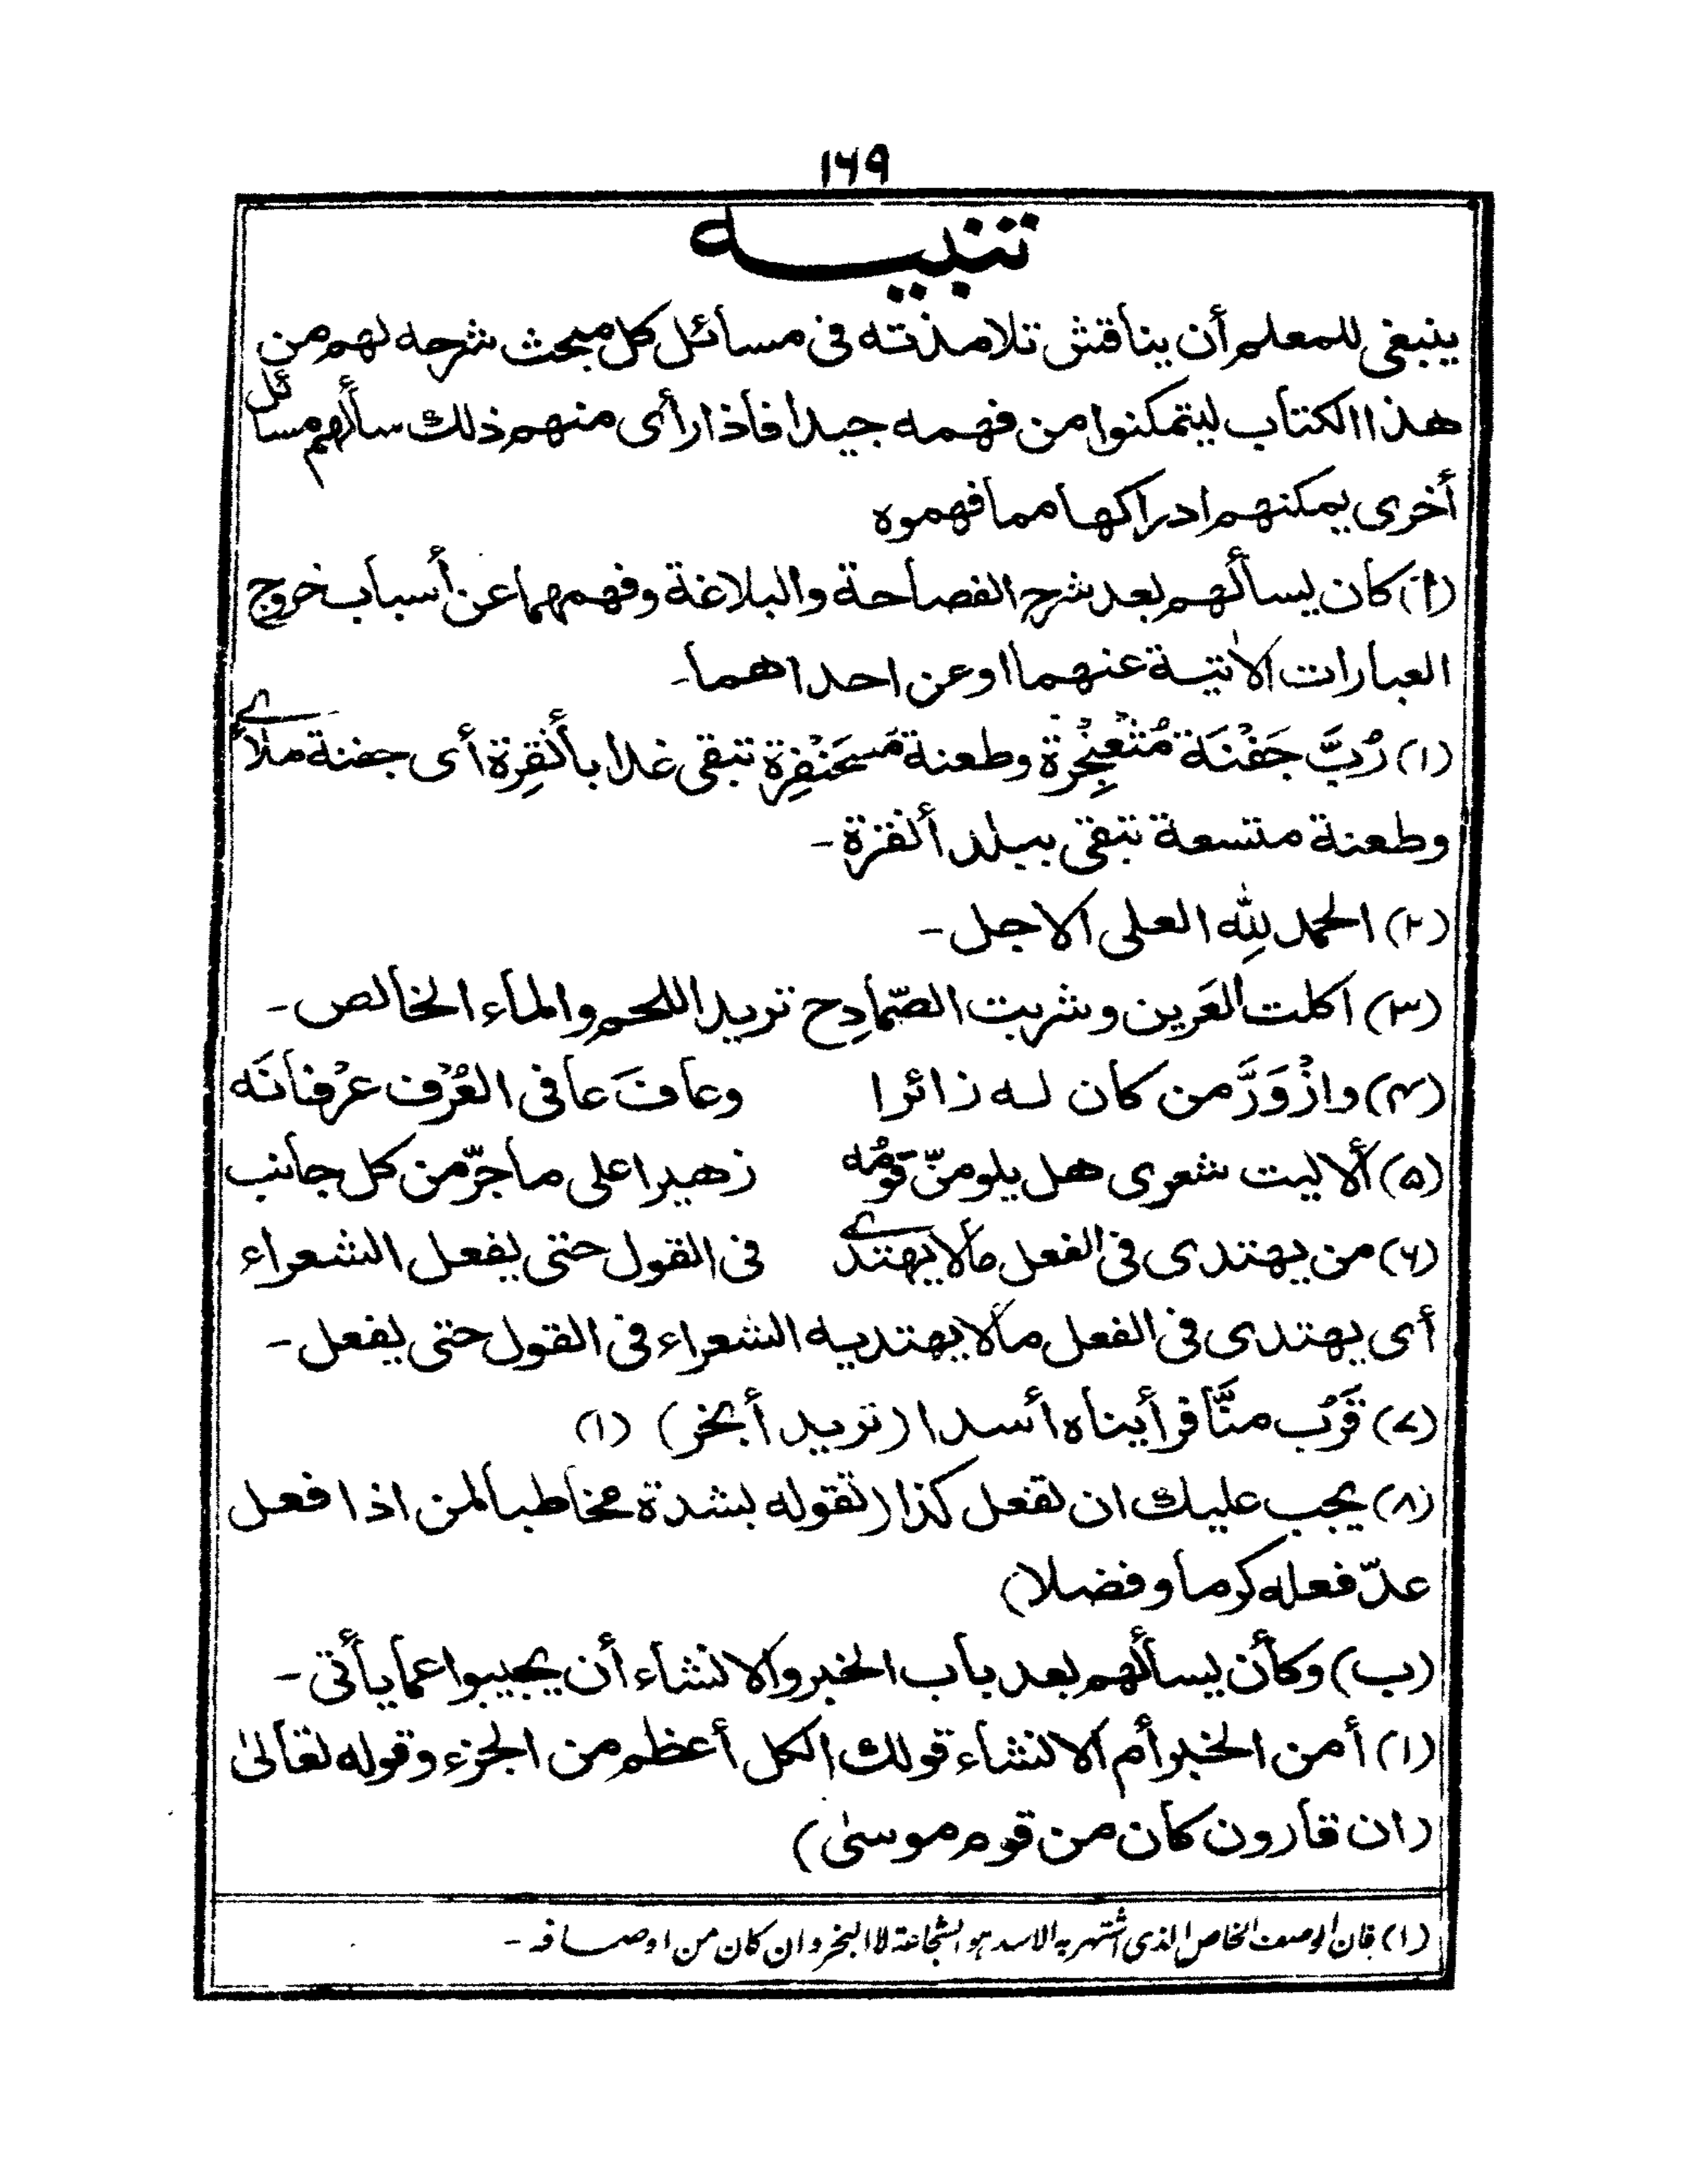 ۱۶۹
تنبيه
ينبغى للمعلم أن يناقش تلامذته فى مسائل كل مبحث شرحه لهم من
هذا الكتاب ليتمكنوا من فهمه جيدا فاذا رأى منهم ذلك سألهم مسائل
أخرى يمكنهم ادراكها مما فهموه
(أ) كان يسألهم بعد شرح الفصاحة والبلاغة وفهمهما عن أسباب خروج
العبارات الاٰتية عنهما اوعن احداهما۔
(۱) رُبَّ جَفْنَة مُثْعَنْجِرة وطعنة مَسحَنْفِرة تبقى غدا بأنْقِرة أى جفنة ملأى
وطعنة متسعة تبقى ببلد أنقرة۔
(۲) الحمد لله العلى الاجل۔
(۳) اكلت العَرين وشربت الصّمادِح تريد اللحم والماء الخالص۔
(۴) وازْوَرَّ من كان له زائرا وعافَ عافى العُرْف عرْفانَه
(۵) ألا ليت شعرى هل يلومنّ قومُه زهيرا على ماجرّ من كل جانب
(۶) من يهتدى فى الفعل مالا يهتدى فى القول حتى يفعل الشعراء
أى يهتدى فى الفعل مالا يهتديه الشعراء فى القول حتى يفعل۔
(۷) قَرُب منَّا فرأيناه أسدا (تريد أبخر) (۱)
(۸) يجب عليك ان تفعل كذا (تقوله بشدة مخاطبا لمن اذا فعل
عدّ فعله كرما وفضلا)
(ب) وكأن يسألهم بعد باب الخبر والانشاء أن يجيبوا عما يأتى۔
(۱) أمن الخبر أم الانشاء قولك الكل أعظم من الجزء وقوله تعالىٰ
(ان قارون كان من قوم موسىٰ)
(۱) فان الوصف الخاص الذى اشتهر به الاسد هو الشجاعة لا البخر وان كان من اوصافه۔